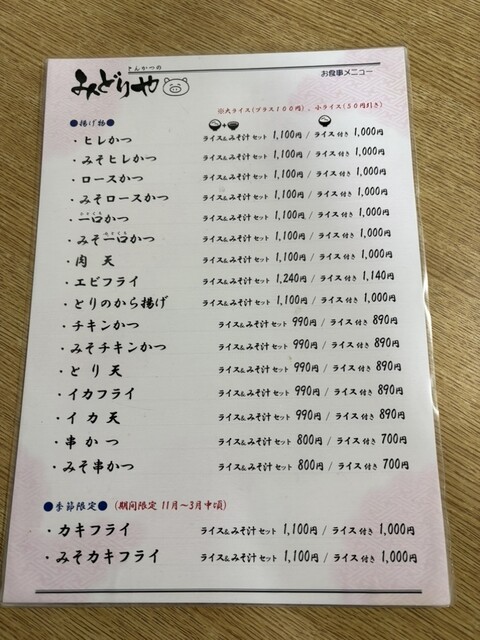 とんかつの
みどりや
お食事メニュー
※大ライス(プラス100円)、小ライス(50円引き)
●揚げ物●
・ヒレかつ ライス&みそ汁セット 1,100円 / ライス付き 1,000円
・みそヒレかつ ライス&みそ汁セット 1,100円 / ライス付き 1,000円
・ロースかつ ライス&みそ汁セット 1,100円 / ライス付き 1,000円
・みそロースかつ ライス&みそ汁セット 1,100円 / ライス付き 1,000円
・一口かつ ライス&みそ汁セット 1,100円 / ライス付き 1,000円
・みそ一口かつ ライス&みそ汁セット 1,100円 / ライス付き 1,000円
・肉 天 ライス&みそ汁セット 1,100円 / ライス付き 1,000円
・エビフライ ライス&みそ汁セット 1,240円 / ライス付き 1,140円
・とりのから揚げ ライス&みそ汁セット 1,100円 / ライス付き 1,000円
・チキンかつ ライス&みそ汁セット 990円 / ライス付き 890円
・みそチキンかつ ライス&みそ汁セット 990円 / ライス付き 890円
・とり天 ライス&みそ汁セット 990円 / ライス付き 890円
・イカフライ ライス&みそ汁セット 990円 / ライス付き 890円
・イカ天 ライス&みそ汁セット 990円 / ライス付き 890円
・串かつ ライス&みそ汁セット 800円 / ライス付き 700円
・みそ串かつ ライス&みそ汁セット 800円 / ライス付き 700円
●季節限定● (期間限定 11月～3月中頃)
・カキフライ ライス&みそ汁セット 1,100円 / ライス付き 1,000円
・みそカキフライ ライス&みそ汁セット 1,100円 / ライス付き 1,000円